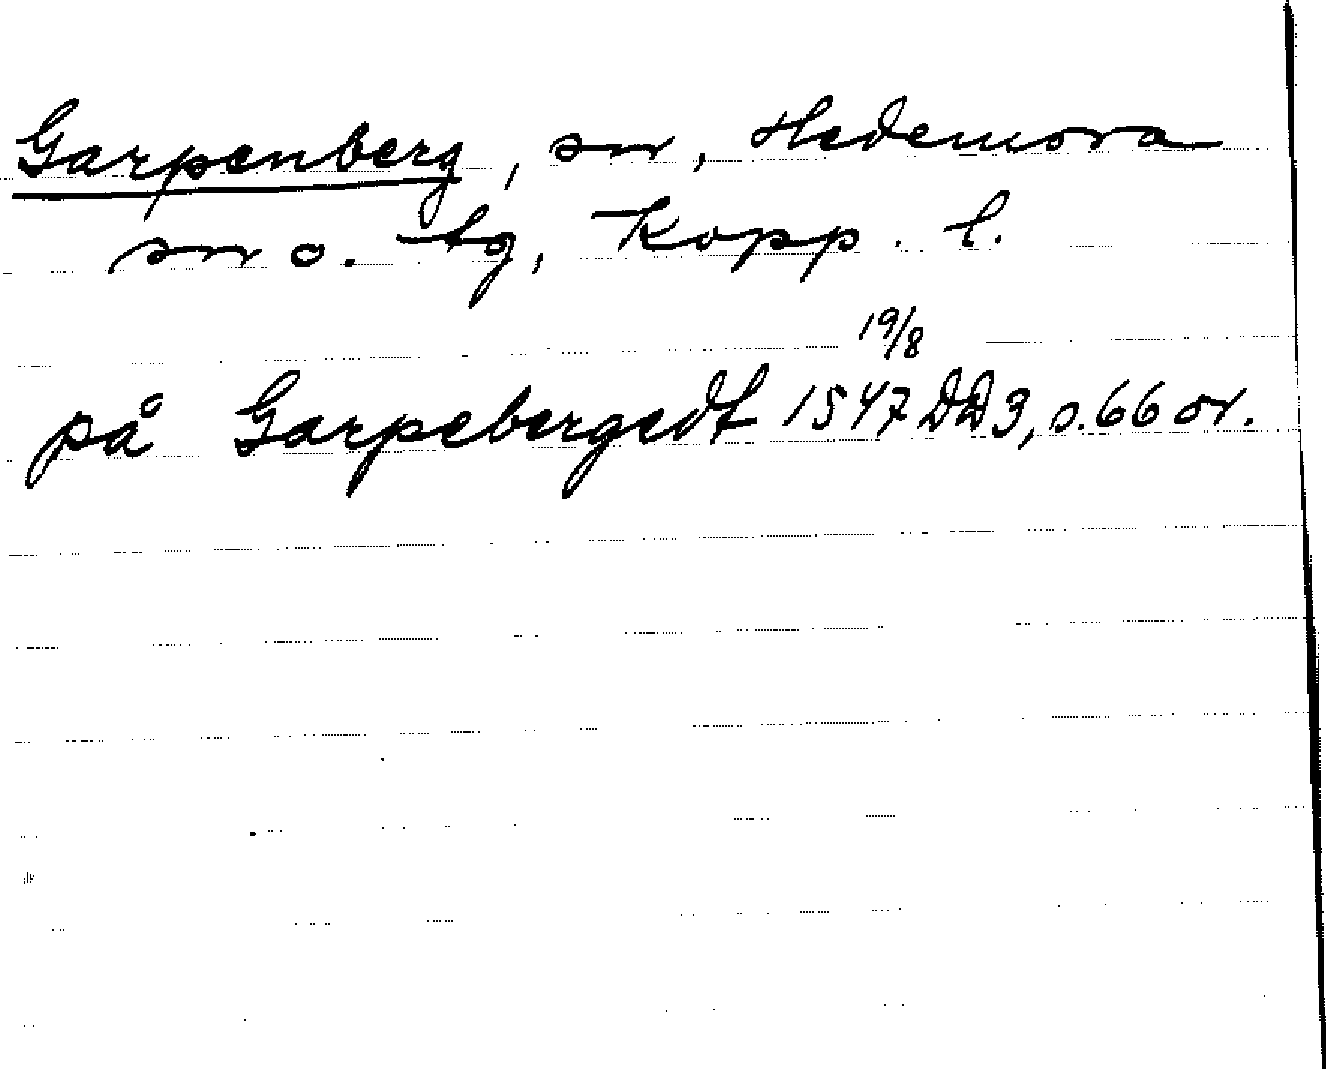 Garpenberg, sn, Hedemora
sn o. tg, Kopp. l.
19/8
på Garpebergedt 1547 DD3, s. 66 or.